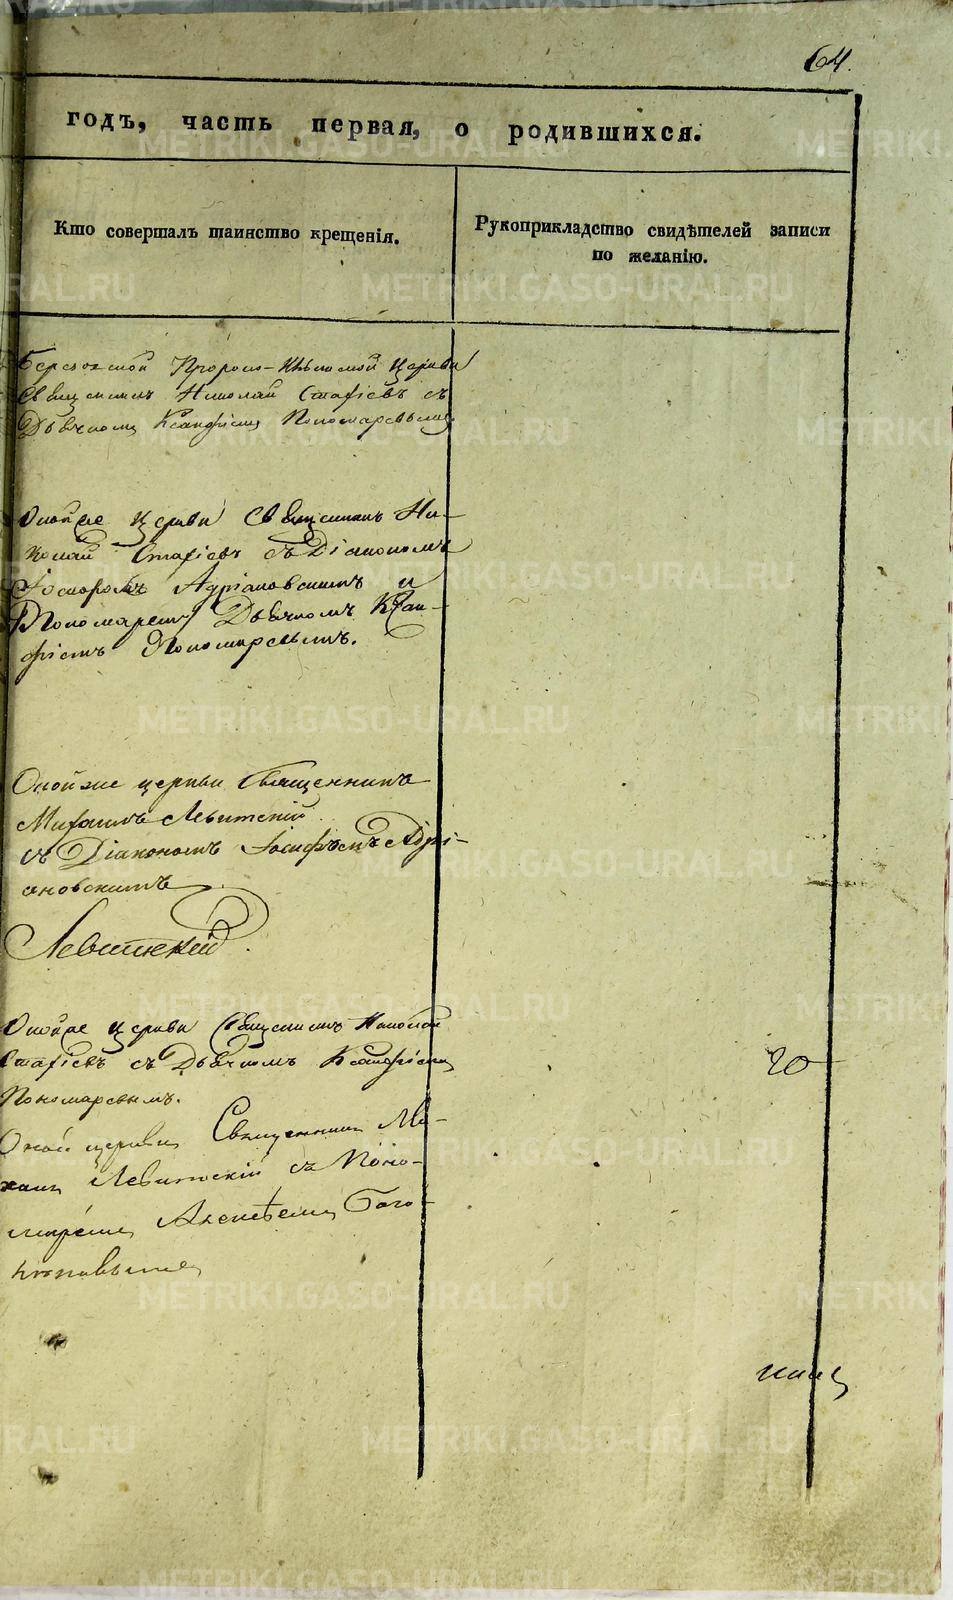 64.
годъ, часть первая, о родившихся.
Кто совершалъ таинство крещенія.
Рукоприкладство свидѣтелей записи
по желанію.
Церкви
Священникъ Николай Стафіевъ съ
Дьячкомъ Пономаревымъ
Оной же Церкви Священникъ Ни-
колай Стафіевъ съ Діакономъ
Адріановскимъ и
Пономаремъ Дьячкомъ Ксан-
фіемъ Пономаревымъ.
Оной же церкви Священникъ
Михаилъ Левитскій
съ Діакономъ Іосифомъ Адрі-
ановскимъ
Левитскій
Оной же Церкви Священникъ Николай
Стафіевъ съ Дьячкомъ Ксанфіемъ
Пономаревымъ.
Оной церкви Священникъ Ми-
хаилъ Левитскій съ Поно-
маремъ Алексѣемъ
20
METRIKI.GASO-URAL.RU